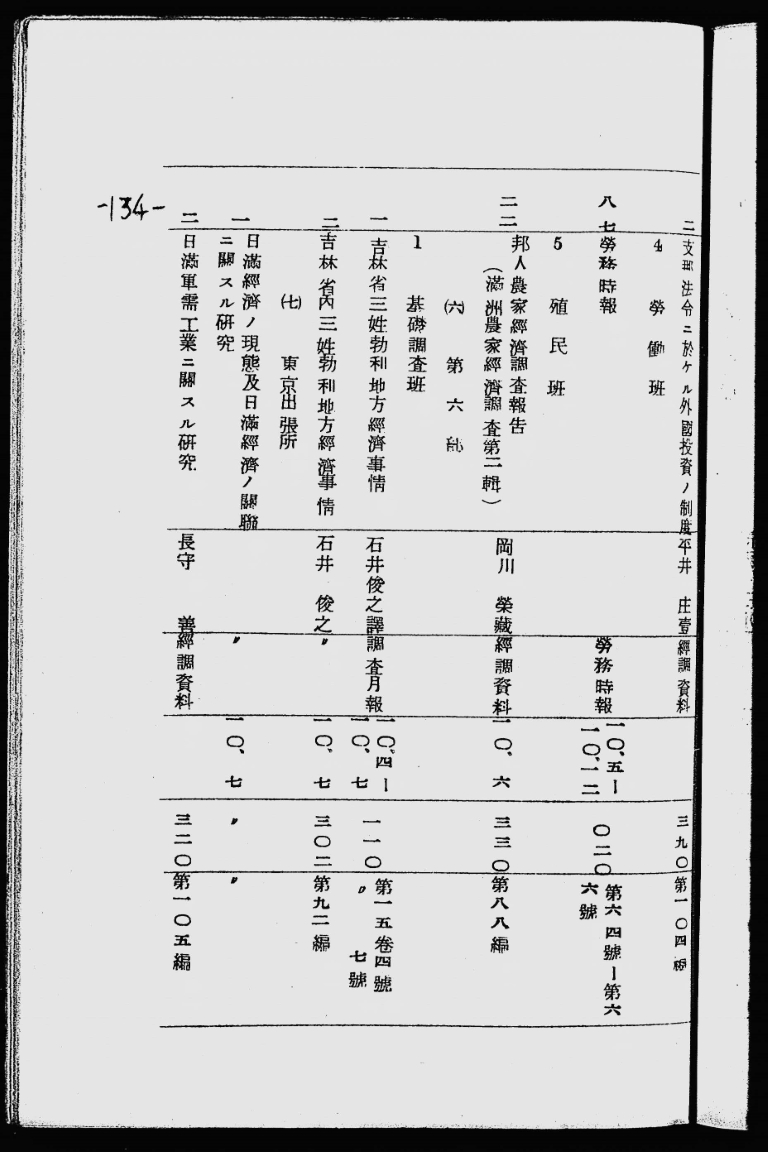 二 支那法令ニ於ケル外國投資ノ制度 平井 庄壹 經調資料 三九〇 第一〇四
4 勞働班
八七 勞務時報 勞務時報 一〇、五ー 一〇、一二 〇二〇 第六四號ー第六六號
5 殖民班
二二 邦人農家經濟調査報告
(滿洲農家經濟調査第二輯) 岡川 榮藏 經調資料 一〇、六 三三〇 第八八編
(六) 第六
1 基礎調査班
一 吉林省三姓勃利地方經濟事情 石井俊之譯 調査月報 一〇、四ー 一〇、七 一一〇 第一五卷四號 〃 七號
二 吉林省內三姓勃利地方經濟事情 石井 俊之 〃 一〇、七 三〇二 第九二編
(七) 東京出張所
一 日滿經濟ノ現態及日滿經濟ノ關聯
ニ關スル研究 〃 一〇、七 〃 〃
二 日滿軍需工業ニ關スル研究 長守 善 經調資料 三二〇 第一〇五編
-134-